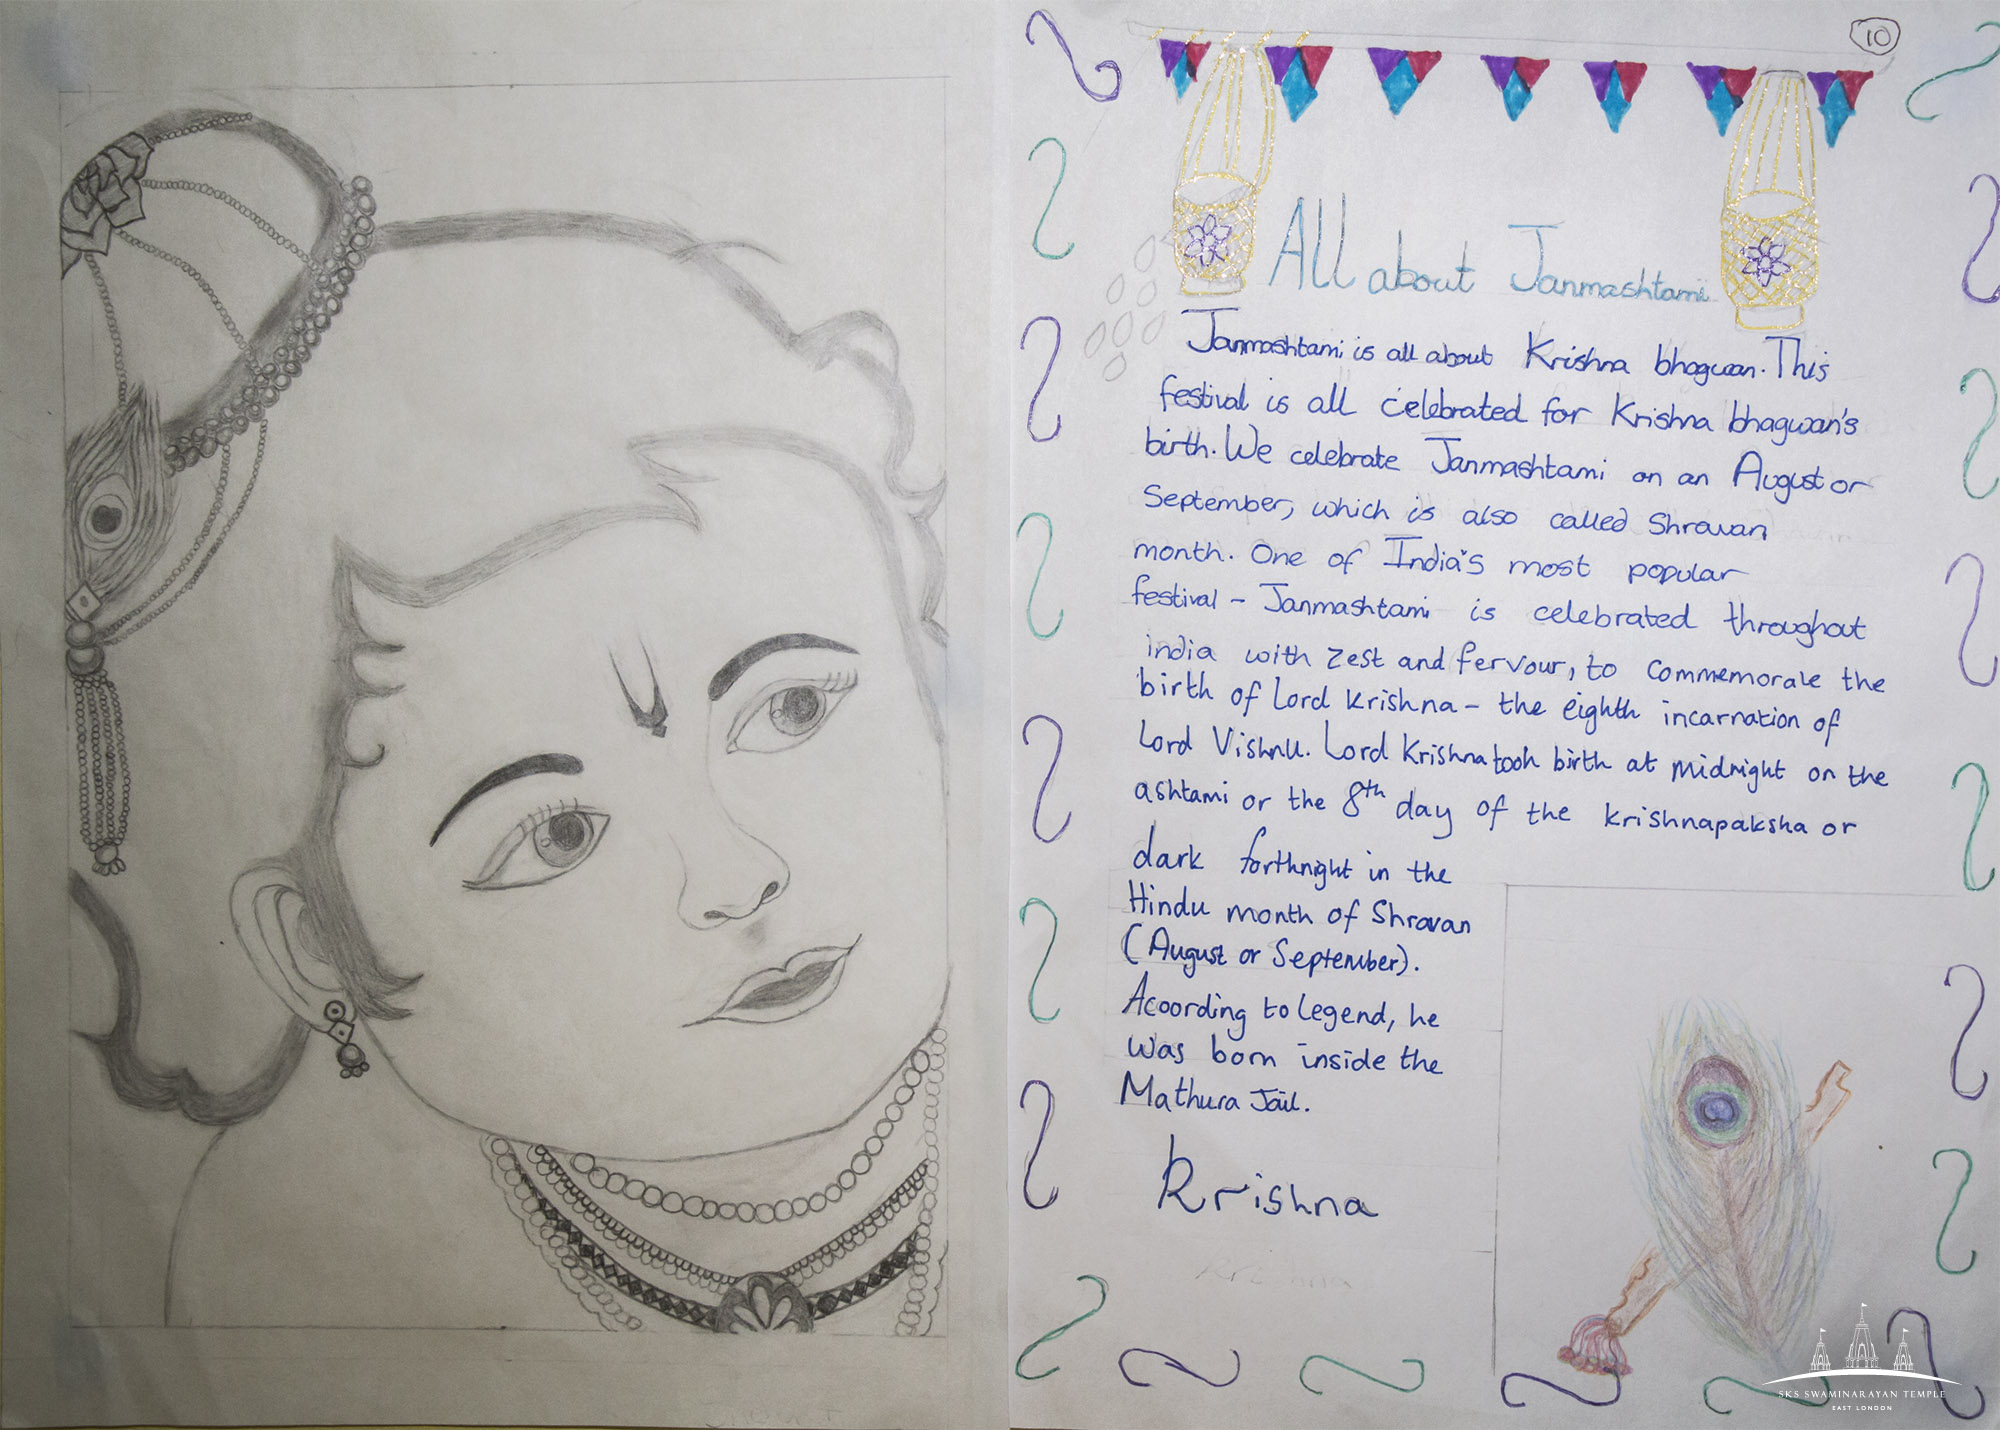 10
All about Janmashtami
Janmashtami is all about Krishna bhagwan. This
festival is all celebrated for Krishna bhagwan's
birth. We celebrate Janmashtami on an August or
September, which is also called Shravan
month. One of India's most popular
festival - Janmashtami is celebrated throughout
india with zest and fervour, to commemorate the
birth of Lord Krishna - the eighth incarnation of
Lord Vishnu. Lord Krishna tooh birth at midnight on the
ashtami or the 8th day of the krishnapaksha or
dark forthnight in the
Hindu month of Shravan
(August or September).
Acoording to legend, he
was born inside the
Mathura Jail.
Krishna
Krishna
SKS SWAMINARAYAN TEMPLE
EAST LONDON